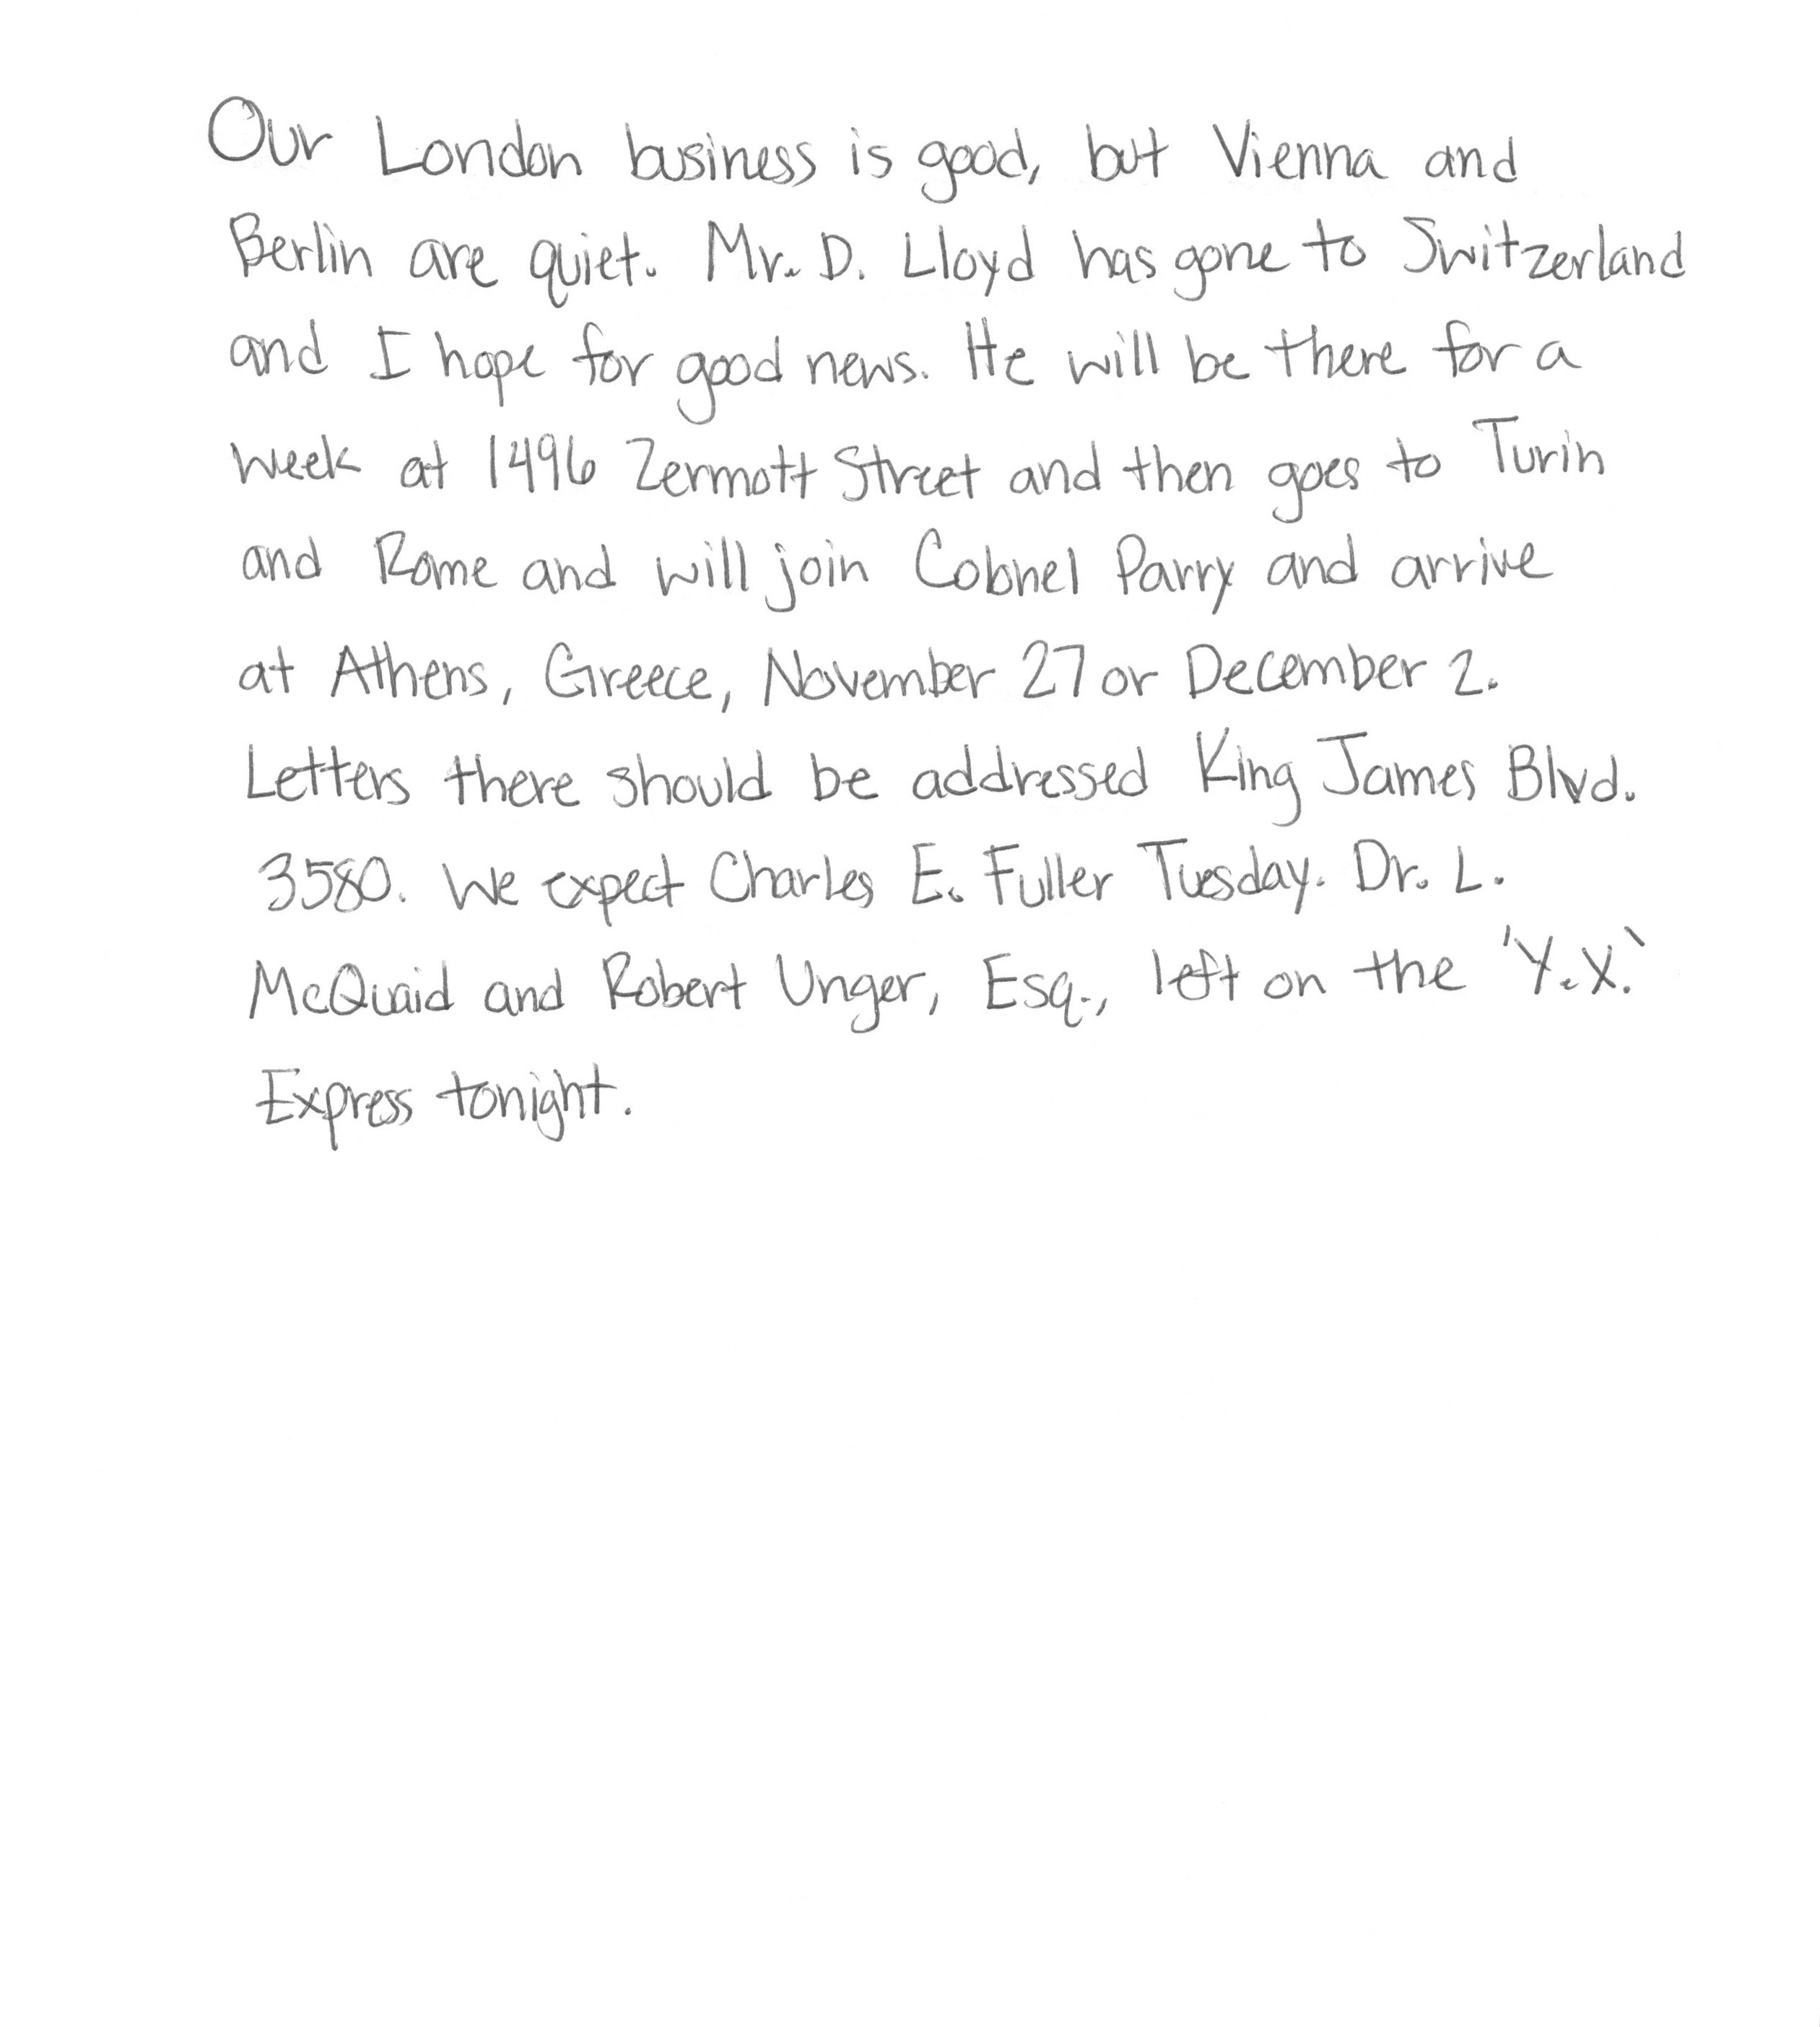 Our London business is good, but Vienna and
Berlin are quiet. Mr. D. Lloyd has gone to Switzerland
and I hope for good news. He will be there for a
week at 1496 Zermott Street and then goes to Turin
and Rome and will join Colonel Parry and arrive
at Athens, Greece, November 27 or December 2.
Letters there should be addressed King James Blvd.
3580. We expect Charles E. Fuller Tuesday. Dr. L.
McQuaid and Robert Unger, Esq., left on the 'Y.X.'
Express tonight.